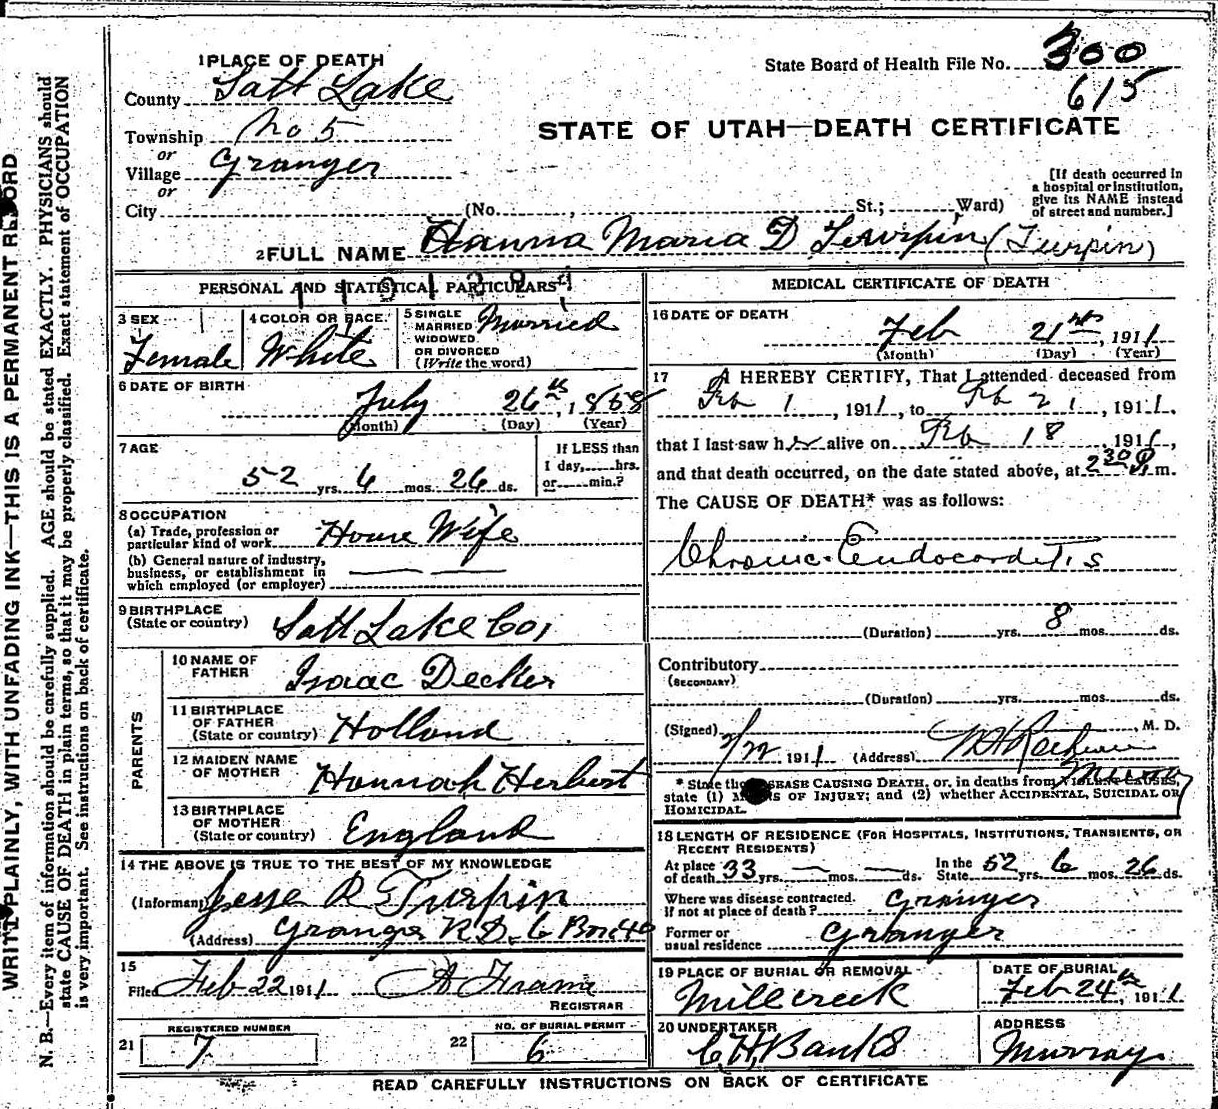 WRITE PLAINLY, WITH UNFADING INK—THIS IS A PERMANENT RECORD
N. B.—Every item of information should be carefully supplied. AGE should be stated EXACTLY. PHYSICIANS should
state CAUSE OF DEATH in plain terms, so that it may be properly classified. Exact statement of OCCUPATION
is very important. See instructions on back of certificate.
1 PLACE OF DEATH
State Board of Health File No. 300
615
County Salt Lake
Township No 5
or
Village Granger
or
City (No. , St.; Ward)
STATE OF UTAH—DEATH CERTIFICATE
[If death occurred in
a hospital or institution,
give its NAME instead
of street and number.]
2 FULL NAME Hanna Maria D Turpin (Turpin)
PERSONAL AND STATISTICAL PARTICULARS
3 SEX Female
4 COLOR OR RACE White
5 SINGLE
MARRIED
WIDOWED
OR DIVORCED
(Write the word) Married
6 DATE OF BIRTH
July 26th, 1858
(Month) (Day) (Year)
7 AGE
52 yrs. 6 mos. 26 ds.
If LESS than
1 day, hrs.
or min.?
8 OCCUPATION
(a) Trade, profession or
particular kind of work House Wife
(b) General nature of industry,
business, or establishment in
which employed (or employer)
9 BIRTHPLACE
(State or country) Salt Lake Co,
PARENTS
10 NAME OF
FATHER Isaac Decker
11 BIRTHPLACE
OF FATHER
(State or country) Holland
12 MAIDEN NAME
OF MOTHER Hannah Herbert
13 BIRTHPLACE
OF MOTHER
(State or country) England
14 THE ABOVE IS TRUE TO THE BEST OF MY KNOWLEDGE
(Informant) Jesse R Turpin
(Address) Granger R.D. 6 Box 40
15
Filed Feb 22 1911
REGISTRAR
REGISTERED NUMBER
21 7
NO. OF BURIAL PERMIT
22 6
MEDICAL CERTIFICATE OF DEATH
16 DATE OF DEATH
Feb 21st, 1911
(Month) (Day) (Year)
17 I HEREBY CERTIFY, That I attended deceased from
Feb 1, 1911, to Feb 21, 1911,
that I last saw her alive on Feb 18, 1911,
and that death occurred, on the date stated above, at 2 30 P. m.
The CAUSE OF DEATH* was as follows:
Chronic Endocarditis
(Duration) yrs. 8 mos. ds.
Contributory
(SECONDARY)
(Duration) yrs. mos. ds.
(Signed) M. D.
2/22 1911 (Address) Murray
* State the DISEASE CAUSING DEATH, or, in deaths from VIOLENT CAUSES,
state (1) MEANS OF INJURY; and (2) whether ACCIDENTAL, SUICIDAL OR
HOMICIDAL.
18 LENGTH OF RESIDENCE (FOR HOSPITALS, INSTITUTIONS, TRANSIENTS, OR
RECENT RESIDENTS)
At place
of death 33 yrs. mos. ds. In the
State 52 yrs. 6 mos. 26 ds.
Where was disease contracted.
if not at place of death? Granger
Former or
usual residence Granger
19 PLACE OF BURIAL OR REMOVAL
Millcreek
DATE OF BURIAL
Feb 24th, 1911
20 UNDERTAKER
C H, Banks
ADDRESS
Murray
READ CAREFULLY INSTRUCTIONS ON BACK OF CERTIFICATE